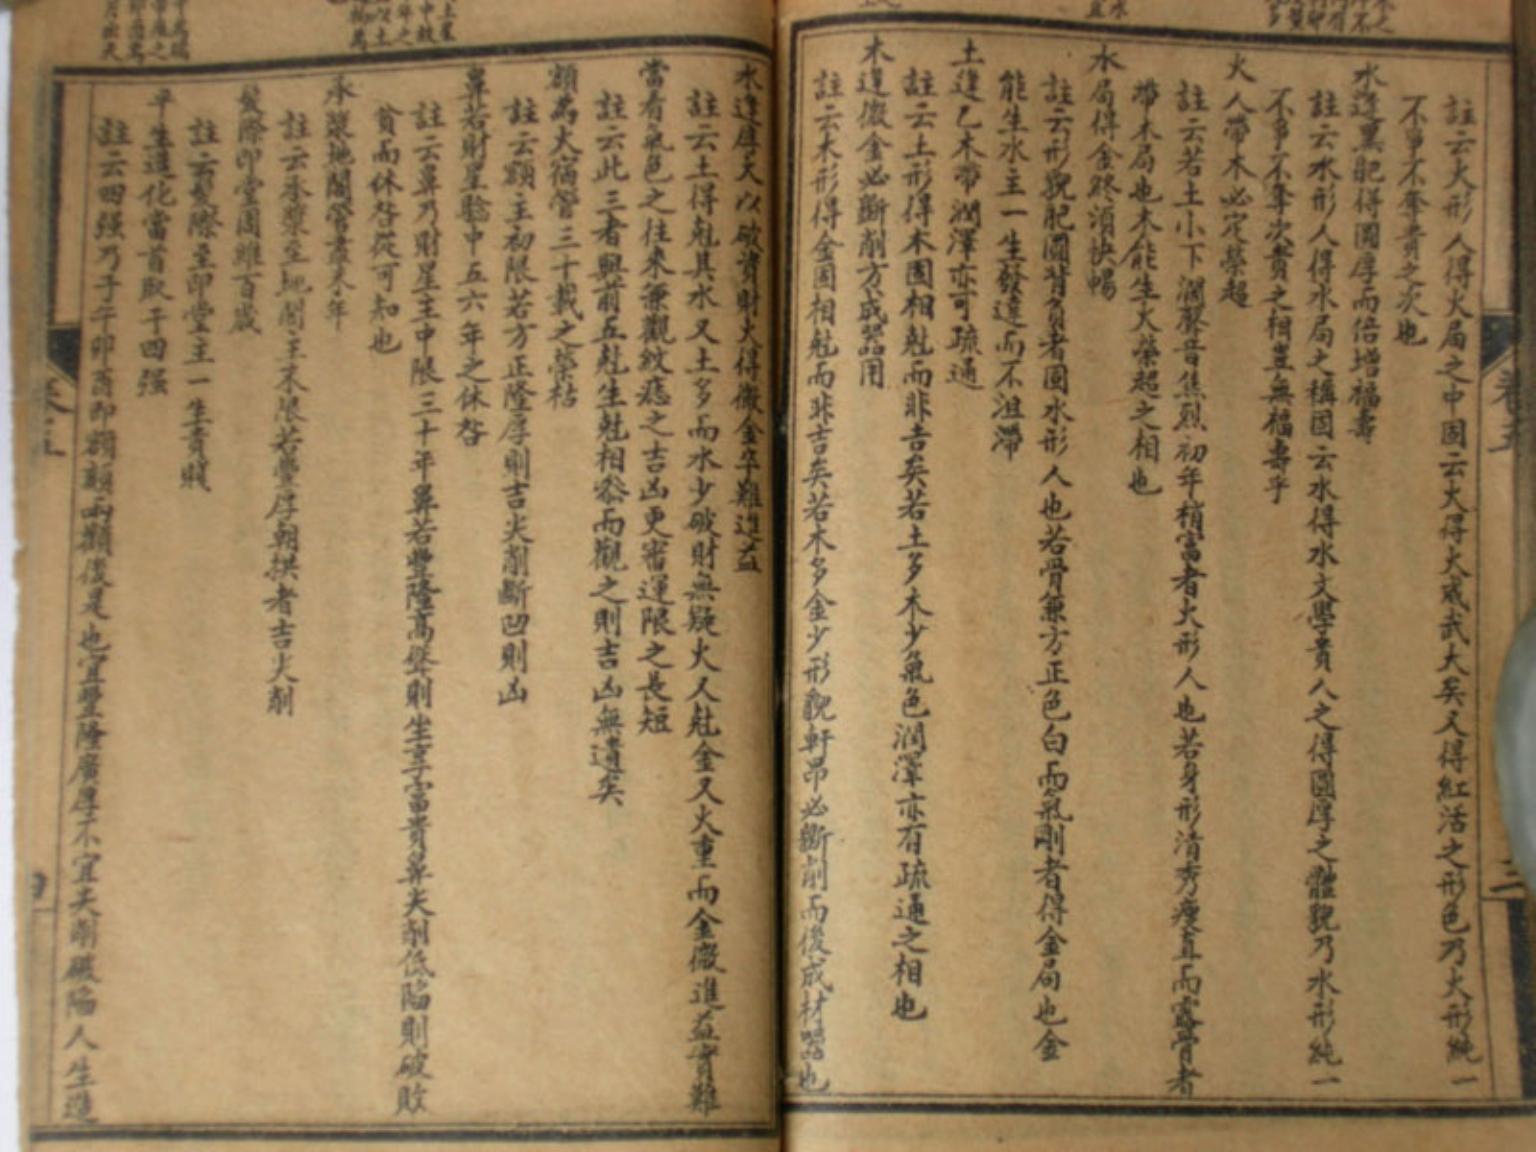 註云火形人得火局之中固云火得火威武大矣人得紅活之形色乃火形純一
不爭不奪貴之次也
水逢黑肥得圓厚而倍增福壽
註云水形人得水局大稱固云水得水文學貴人之得圓厚之體貌乃水形純一
不爭不奪次貴之相豈無福壽乎
火人帶木必定榮超
註云若土小下濶聲音焦烈初年稍富者火形人也若身形清秀瘦直而露骨者
帶木局也木能生火榮超之相也
水局得金終須快暢
註云形貌肥圓背負者固水形人也若骨兼方正色白而氣剛者得金局也金
能生水主一生發達而不沮滯
土逢乙木帶潤澤亦可疏通
註云土形得木固相尅而非吉矣若土多木少氣色潤澤亦有疏通之相也
木逢微金必斷削方成器用
註云木形得金固相尅而非吉矣若木多金少形貌軒昂必斷削而後成材器也
水逢厚天以破資財火得微金卒難進益
註云土得尅其水又土多而水少破財無疑火人尅金又火重而金微進益實難
當看氣色之往來兼觀紋痣之吉凶更審運限之長短
註云此三者與前五尅生尅相叅而觀之則吉凶無遺矣
額為火宿管三十載之榮枯
註云額主初限若方正隆厚則吉尖削斷凹則凶
鼻若財星驗中五六年之休咎
註云鼻乃財星主中限三十年鼻若豐隆高聳則生享富貴鼻尖削低陷則破敗
貧而休咎從可知也
承漿地閣管盡末年
註云承漿至地閣主末限若豐厚朝拱者吉火削
髮際印堂周維百歲
註云髮際至印堂主一生貴賤
平生造化當首取于四强
註云四强乃子午卯酉即額頦兩顴後是也宜豐隆廣厚不宜尖削缺陷人生造
卷五
三